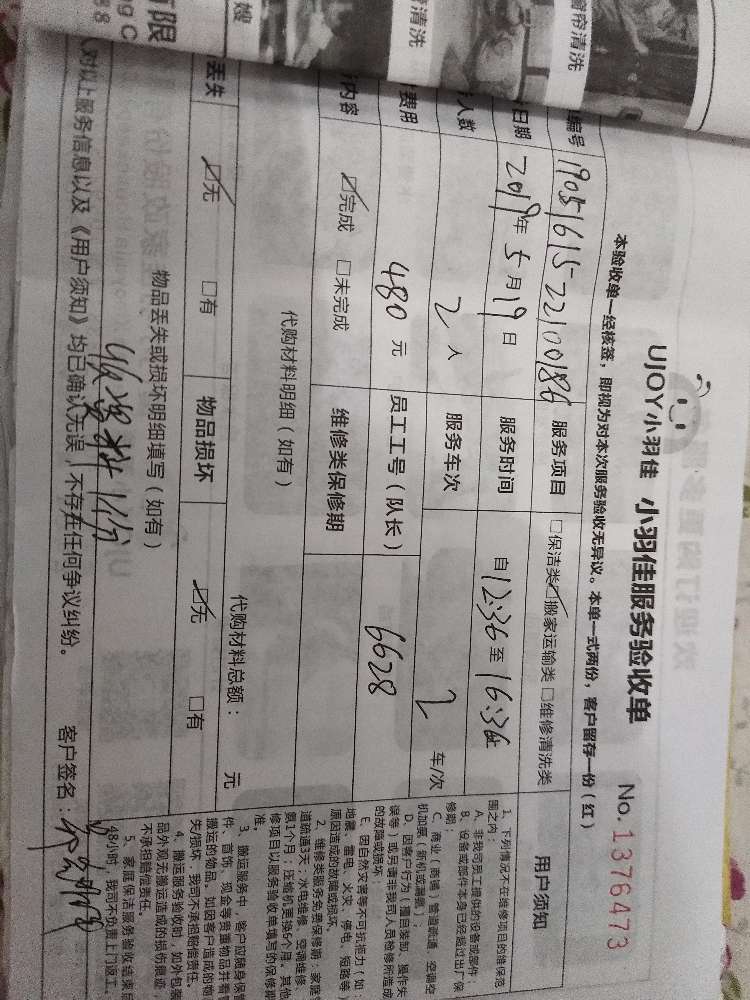 有限
嫂
清洗
窗帘清洗
UJOY小羽佳 小羽佳服务验收单
No. 1376473
本验收单一经核签，即视为对本次服务验收无异议。本单一式两份，客户留存一份（红）
编号 19051615-22100186 服务项目 □保洁类☑搬家运输类 □维修清洗类
日期 2019年5月19日 服务时间 自12:36至16:36
人数 2人 服务车次 2 车/次
费用 480元 员工工号（队长） 6628
内容 ☑完成 □未完成 维修类保修期
代购材料明细（如有）
代购材料总额： 元
丢失 ☑无 □有 物品损坏 ☑无 □有
物品丢失或损坏明细填写（如有）
对以上服务信息以及《用户须知》均已确认无误，不存在任何争议纠纷。
客户签名：
用户须知
1、下列情况不在维修项目的维保范
围之内：
A、非我司员工提供的设备或部件；
B、设备或部件本身已经超过出厂保
修期；
C、商业（商铺）管道疏通、空调空
机加氟（新机或漏氟）；
D、因客户行为（擅自装卸、操作失
误等）或另请非我司人员检修所造成
的故障或损坏
E、因自然灾害等不可抗拒力（如：
地震、雷电、火灾、停电、短路等）
原因造成的故障或损坏。
2、维修类服务免费保修期：家庭
道疏通3天；水电维修、空调维修
氨1个月；压缩机更换6个月。其他
修项目以服务验收单填写的保修期
准。
3、搬运服务中，客户应随身保管
件、首饰、现金等贵重物品并看管
搬运的物品。如因客户造成的物
失/损坏，我司不承担赔偿责任。
4、搬运服务验收时，如外包装
品外观无搬运造成的损伤痕迹
不承担赔偿责任。
5、家庭保洁服务验收结束后
48小时，我司不负责上门返工。